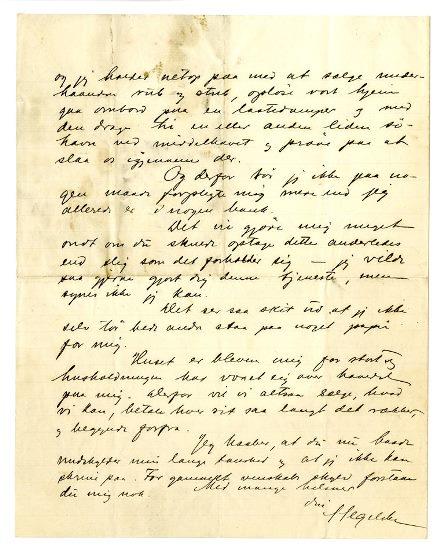 og jeg holder netop paa med at sælge under-
haanden rub og stub, opløse vort hjem
gaa ombord paa en lastedamper og med
den drage til en eller anden liden sö-
havn ved middelhavet og prøve paa at
slaa os igjennem der.
Og derfor tør jeg ikke paa no-
gen maade forpligte mig mere end jeg
allerede er i nogen bank.
Det vil gjøre mig meget
ondt om du skulde optage dette anderledes
end slig som det forholder sig — jeg vilde
saa gjerne gjort dig denne tjeneste, men
synes ikke jeg kan.
Det ser saa skit ud at jeg ikke
selv tør bede andre staa paa noget papir
for mig.
Huset er bleven mig for stort og
husholdningen har voxet sig over hovedet
paa mig, derfor vil vi altsaa sælge, hvad
vi kan, betale hver sit saa langt det rækker,
og begynde forfra.
Jeg haaber, at du nu baade
undskylder min lange taushed og at jeg ikke kan
skrive paa. For gammelt venskabs skyld forstaar
du mig nok. Med mange hilsener
din